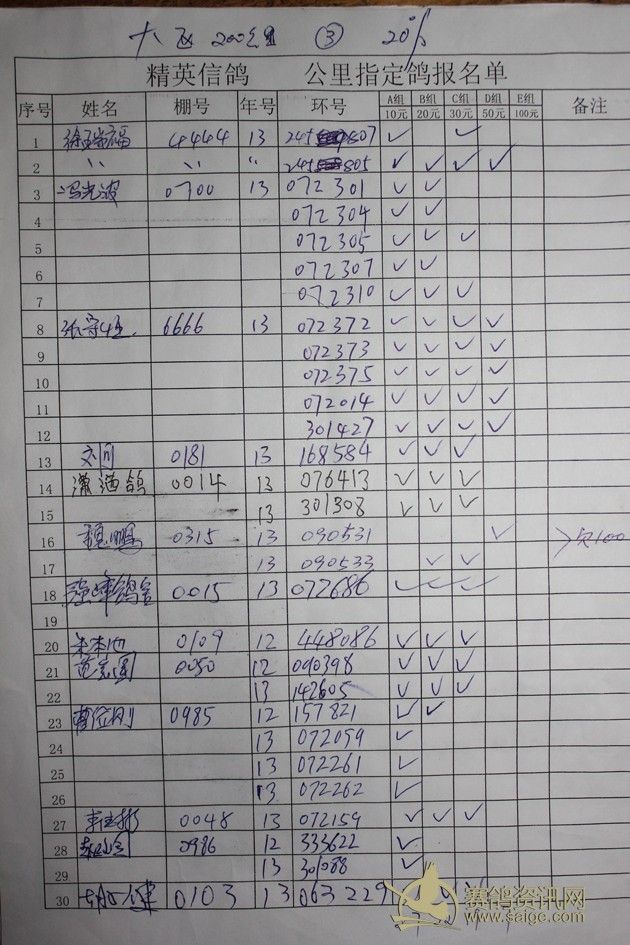 200公里 ③ 20%
精英信鸽 公里指定鸽报名单
序号 姓名 棚号 年号 环号 A组 B组 C组 D组 E组 备注
10元 20元 30元 50元 100元
1 4444 13 245 807 ✓ ✓
2 〃 〃 〃 245 805 ✓ ✓ ✓ ✓
3 冯光波 0700 13 072301 ✓ ✓
4 072304 ✓ ✓
5 072305 ✓ ✓ ✓
6 072307 ✓ ✓
7 072310 ✓ ✓ ✓
8 6666 13 072372 ✓ ✓ ✓ ✓
9 072373 ✓ ✓ ✓ ✓
10 072375 ✓ ✓ ✓ ✓
11 072014 ✓ ✓ ✓ ✓
12 301427 ✓ ✓ ✓ ✓
13 0181 13 168584 ✓ ✓ ✓
14 潇洒鸽 0014 13 076413 ✓ ✓ ✓
15 13 301308 ✓ ✓ ✓
16 0315 13 090531 ✓ 欠100
17 13 090533 ✓ ✓
18 0015 13 072686 ✓ ✓ ✓
19
20 0109 12 448086 ✓ ✓ ✓
21 0050 12 090398 ✓ ✓ ✓
22 13 142605 ✓ ✓ ✓
23 曹位刚 0985 12 157821 ✓ ✓
24 13 072059 ✓
25 13 072261 ✓
26 13 072262 ✓
27 0048 13 072159 ✓ ✓ ✓
28 0986 12 333622 ✓
29 13 301088 ✓
30 0103 13 063229
赛鸽资讯网
www.saige.com